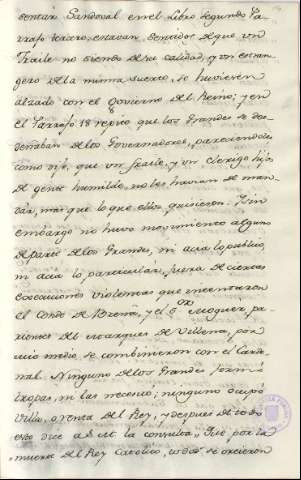 sentar Sandoval en el Libro segundo Pa-
rrafo tercero, estavan sentidos de que un
Fraile no siendo de su calidad, y un estran-
gero de la misma suerte, se huviesen
alzado con el govierno del Reino; y en
el Parrafo 18 repite que los Grandes se des-
deñaban de los Governadores, pareciendoles
como dijo, que un fraile, y un clerigo hijos
de gente humilde, no les havian de man-
dar, mas que lo que ellos quisiesen. Sin
embargo no huvo movimiento alguno
de parte de los Grandes, ni acia lo publico,
ni acia lo particular, fuera de ciertas
execuciones violentas que intentaron
el Conde de Ureña, y el S.or Moguer, pa-
rientes del Marques de Villena, por
cuio medio se combinieron con el Carde-
nal. Ninguno de los Grandes formó
tropas, ni las necesitó; ninguno ocupó
Villa, o renta del Rey, y despues de todo
esto dice a la consulta, Que por la
muerte del Rey Catolico, todos se hicieron